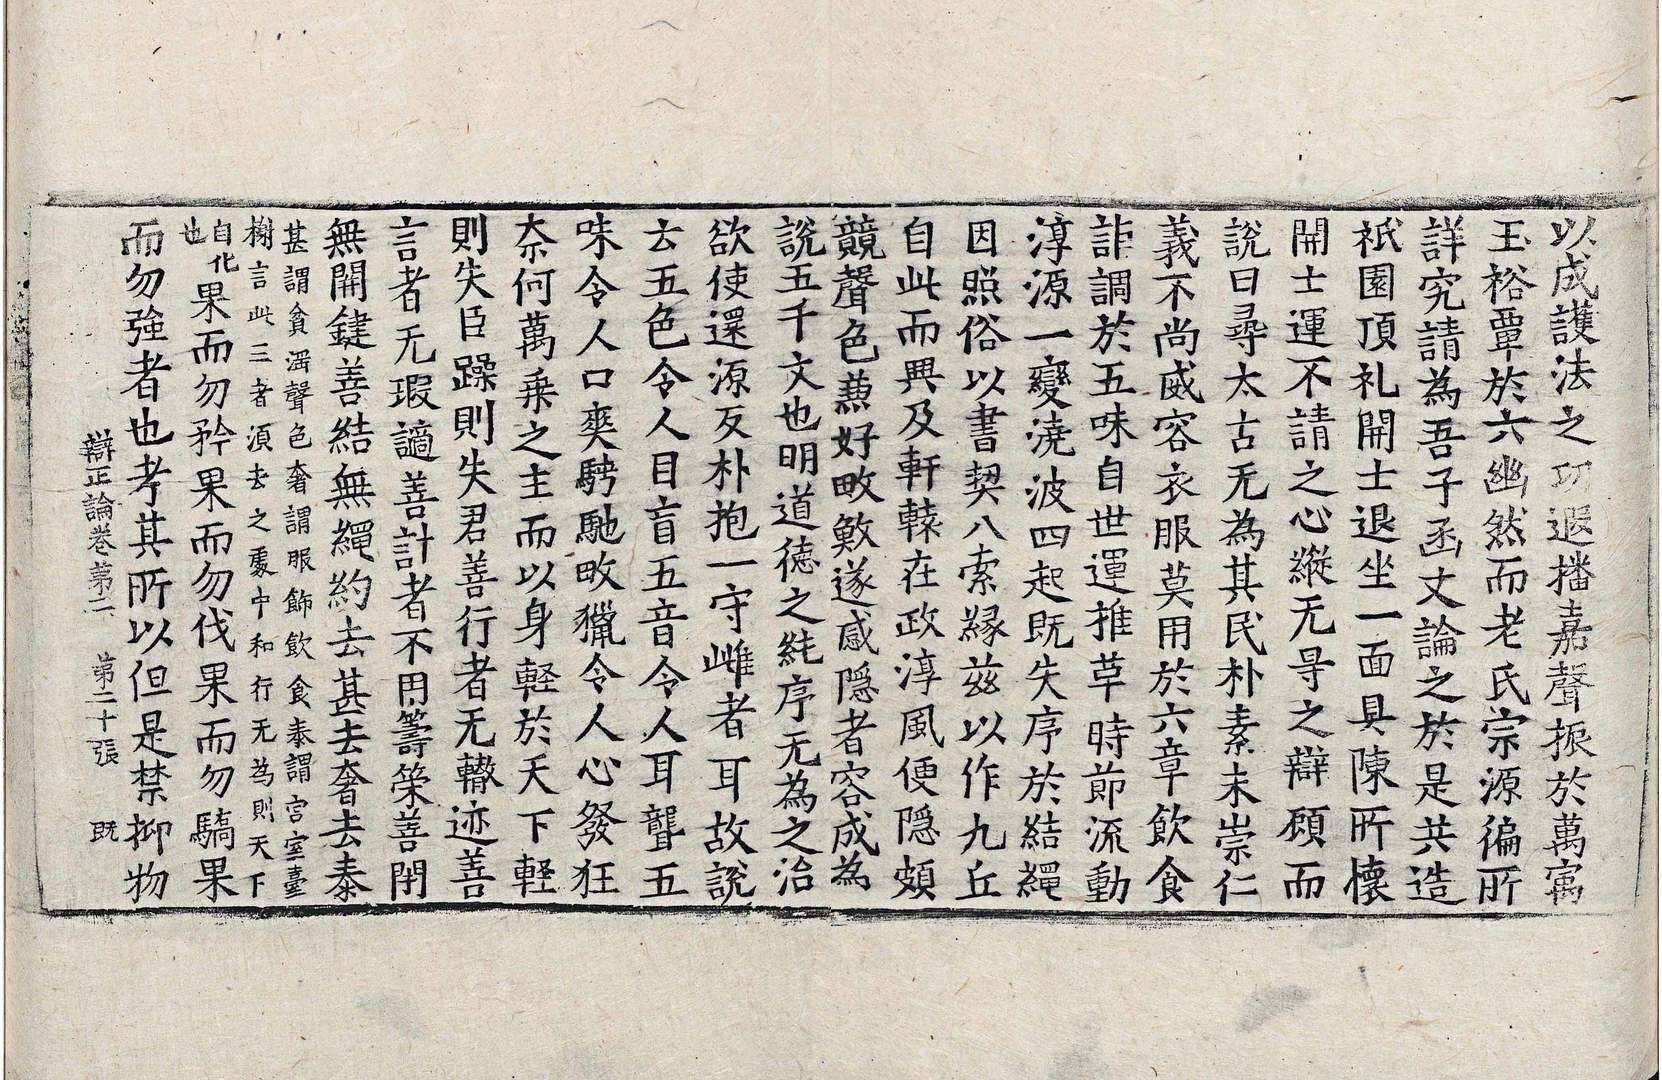 以成護法之功遐播嘉聲振於萬寓
玉裕覃於六幽然而老氏宗源徧所
詳究請為吾子函丈論之於是共造
祇園頂礼開士退坐一面具陳所懷
開士運不請之心縱无㝵之辯頋而
說曰尋太古无為其民朴素未崇仁
義不尚威容衣服莫用於六章飲食
詎調於五味自世運推草時節流動
淳源一變澆波四起既失序於結繩
因照俗以書契八索縁茲以作九丘
自此而興及軒轅在政淳風便隱頗
競聲色蕉好畋敷遂感隱者容成為
說五千文也明道德之純序无為之治
欲使還源反朴抱一守雌者耳故說
云五色令人目盲五音令人耳聾五
味令人口爽騁馳畋獵令人心發狂
柰何萬乗之主而以身軽於天下軽
則失臣躁則失君善行者无轍迹善
言者无瑕讁善計者不用籌筞善閇
無開鍵善結無繩約去甚去奢去泰
甚謂貪滛聲色奢謂服飾飲食泰謂宫室臺
榭言此三者湏去之䖏中和行无為則天下
自化
也
果而勿矜果而勿伐果而勿驕果
而勿強者也考其所以但是禁抑物
辯正論卷苐二 苐二十張 既